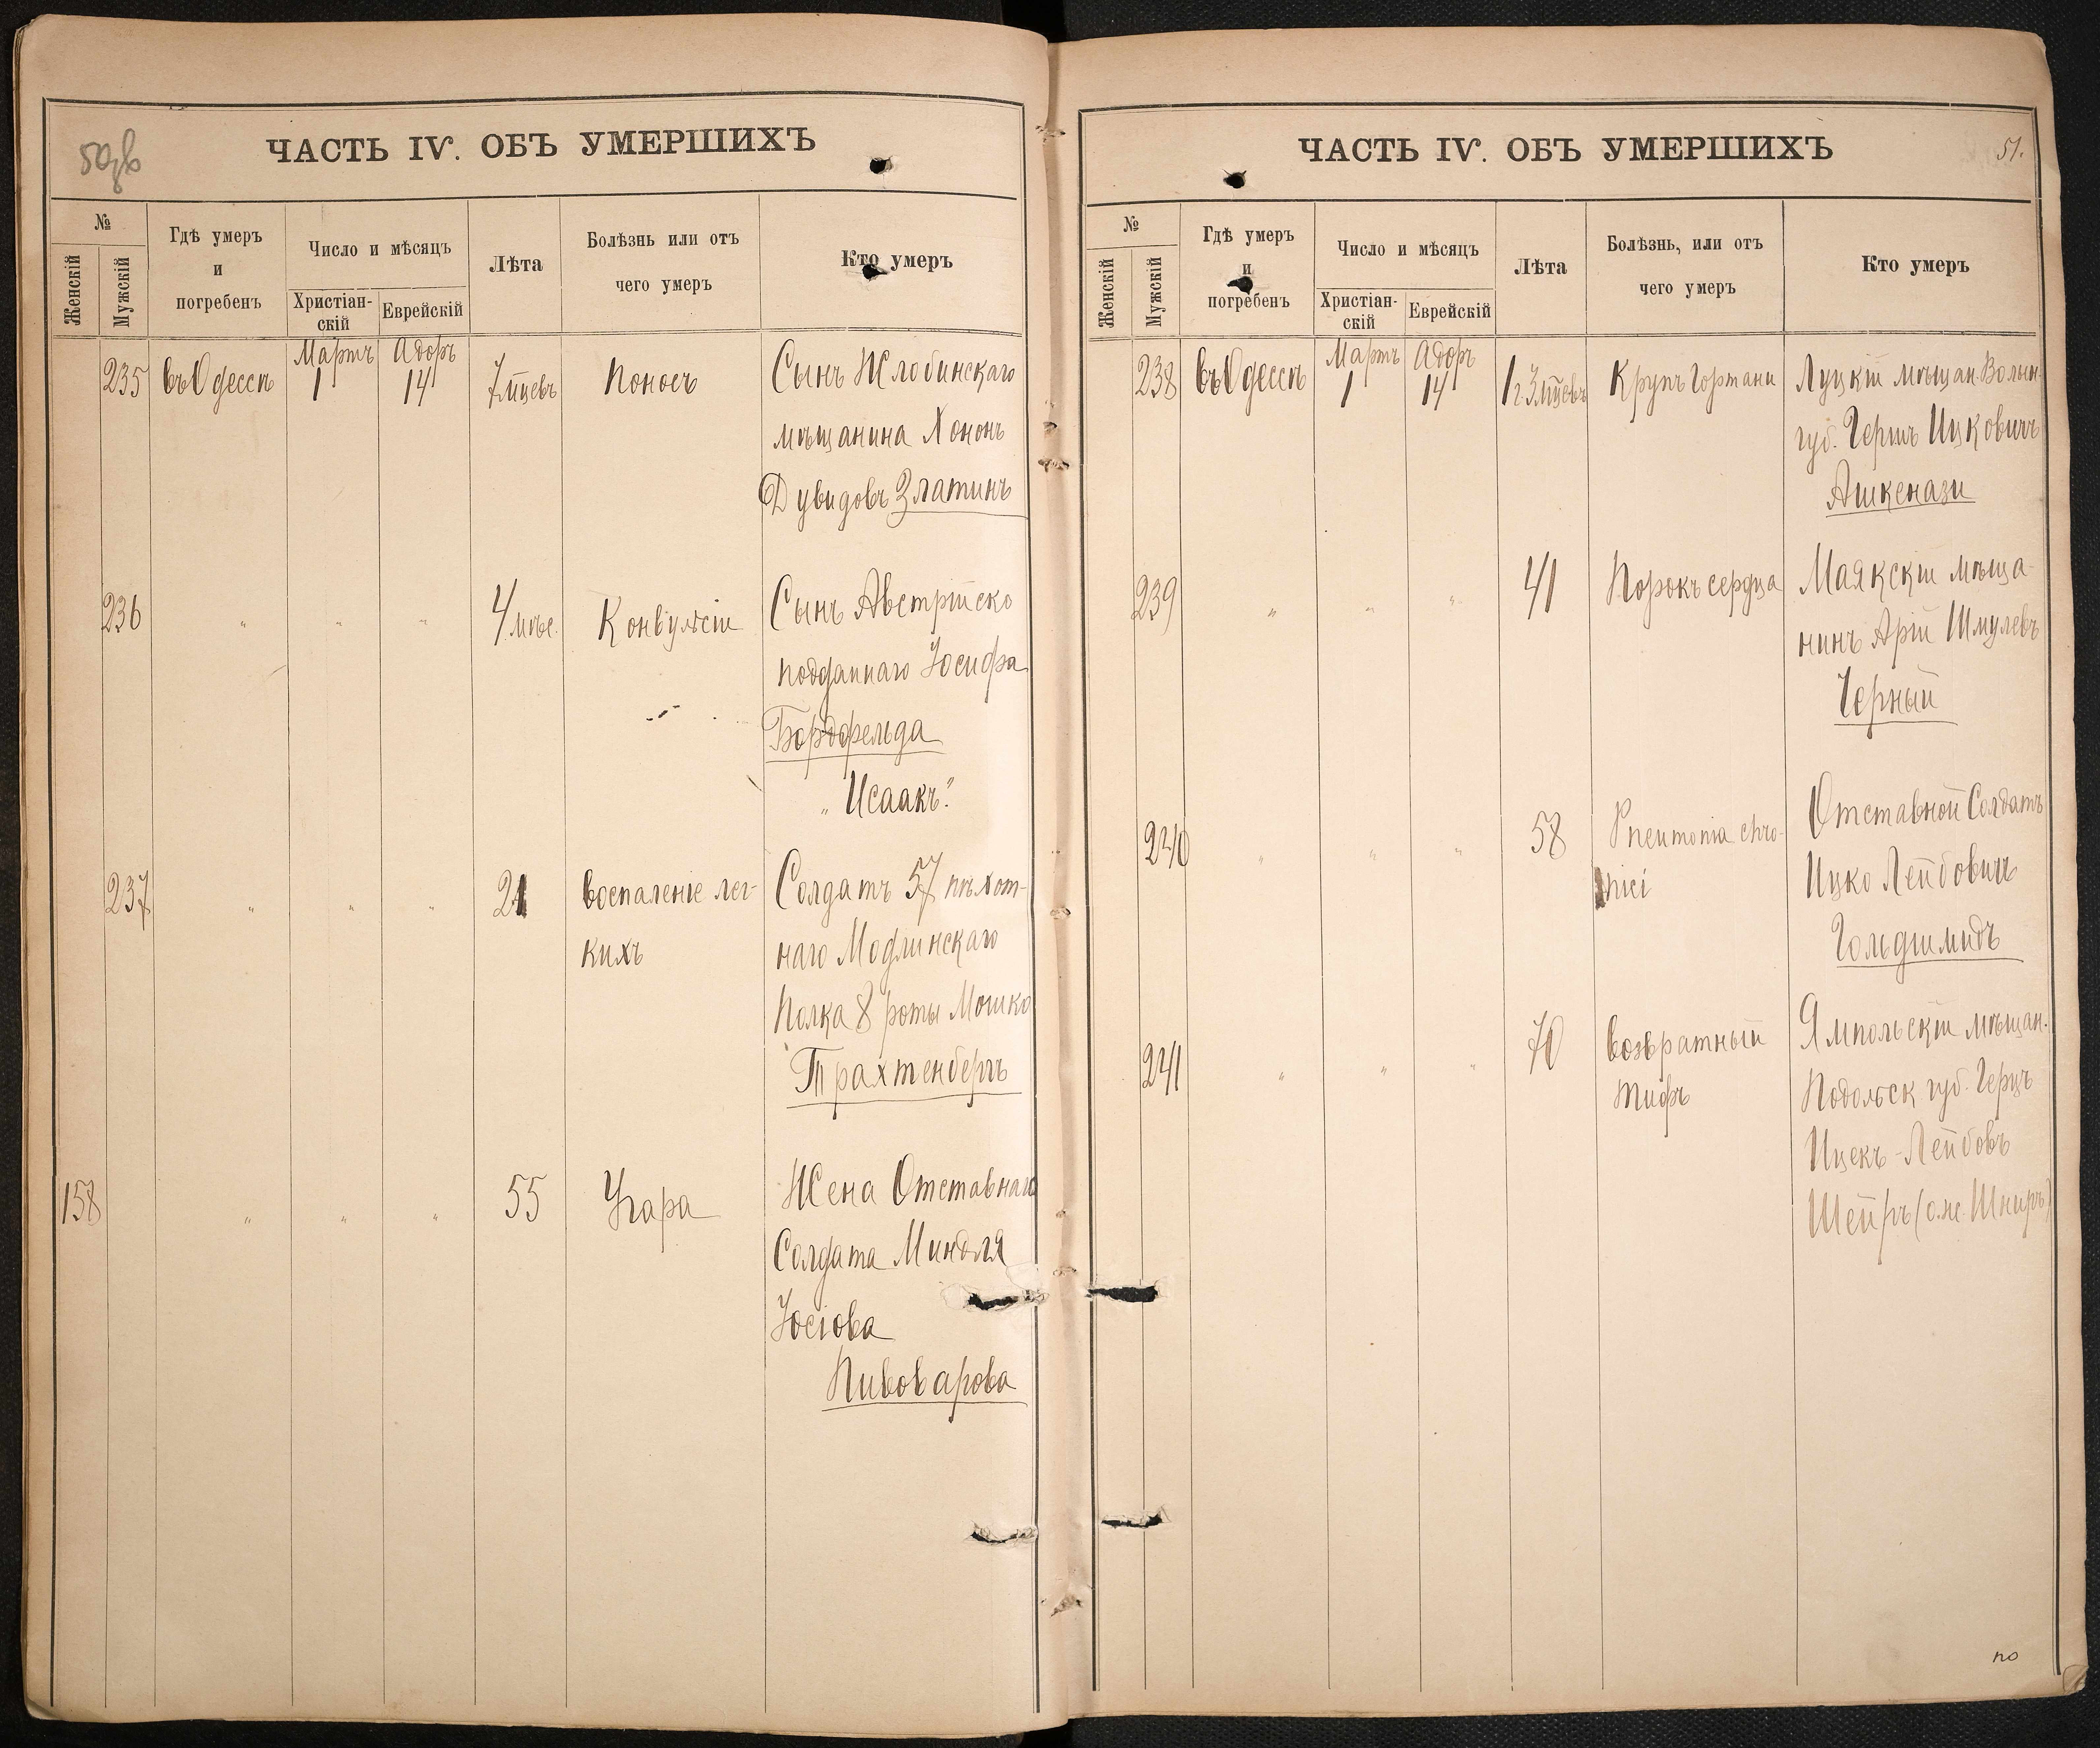 50 об
ЧАСТЬ IV. ОБЪ УМЕРШИХЪ
№
Женскій
Мужскій
Гдѣ умеръ
и
погребенъ
Число и мѣсяцъ
Христіан-
скій
Еврейскій
Лѣта
Болѣзнь или отъ
чего умеръ
Кто умеръ
235 въ Одессѣ Мартъ 1 Адоръ 14 7 мцевъ Поносъ Сынъ Жлобинскаго
мѣщанина Хононъ
Дувидовъ Златинъ
236 " " " 4 мѣс. Конвульсіи Сынъ Австрійско
подданнаго Іосифа
Бордфельда
„Исаакъ"
237 " " " 21 Воспаленіе лег- Солдатъ 57 пѣхот-
кихъ наго Модлинскаго
Полка 8 роты Мошко
Трахтенбергъ
158 " " " 55 Угара Жена Отставнаго
Солдата Миндля
Іосіова
Пивоварова
ЧАСТЬ IV. ОБЪ УМЕРШИХЪ
51.
№
Женскій
Мужскій
Гдѣ умеръ
и
погребенъ
Число и мѣсяцъ
Христіан-
скій
Еврейскій
Лѣта
Болѣзнь, или отъ
чего умеръ
Кто умеръ
238 въ Одессѣ Мартъ 1 Адоръ 14 1 г. 3 мцевъ Крупъ Гортани Луцкій мѣщан. Волын.
губ. Гершъ Ицковичъ
Ашкенази
239 " " " 41 Порокъ сердца Маякскій мѣща-
нинъ Арій Шмулевъ
Черный
240 " " " 58 Pneumonia chro- Отставной Солдатъ
nici Ицко Лейбовичъ
Гольдшмидъ
241 " " " 70 Возвратный Ямпольскій мѣщан.
тифъ Подольск губ. Герцъ
Ицекъ-Лейбовъ
Шейръ (о.же. Шниръ)
по